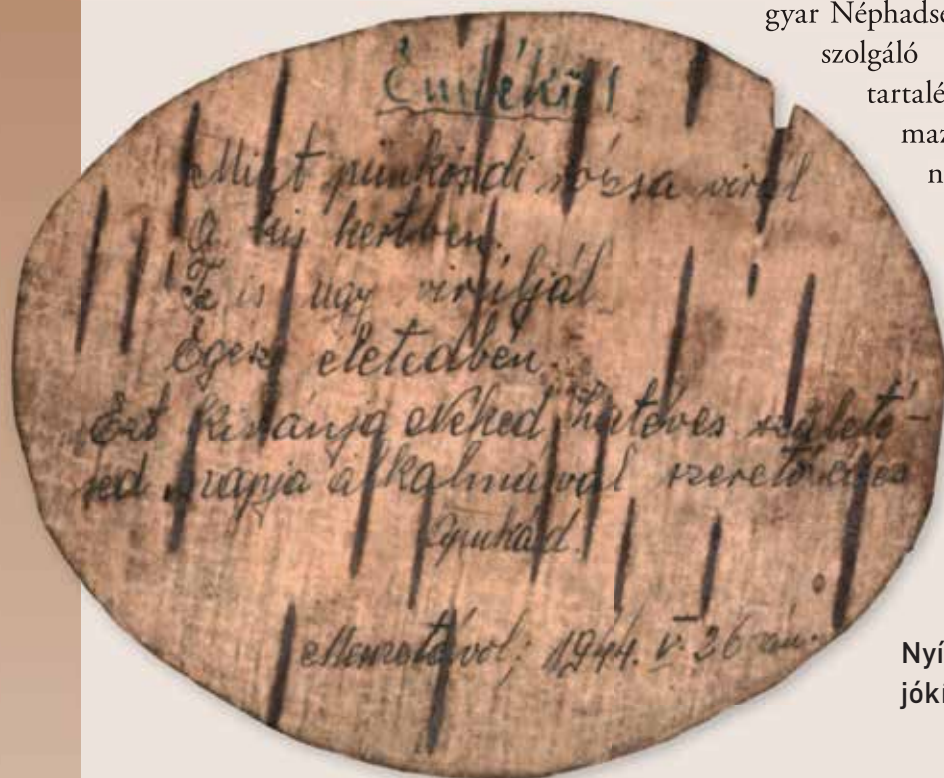 gyar Néphadse
szolgáló
tartalé
maz
n
Emlékül!
Mint pünkösdi rózsa virúl
A kis kertben.
Te is úgy virúljál
Egész életedben.
Ezt kívánja Néked hatéves születé-
sed napja álkalmával szerető édes
Apukád.
Messzetávol, 1944. V. 26-án.
Nyí
jókí